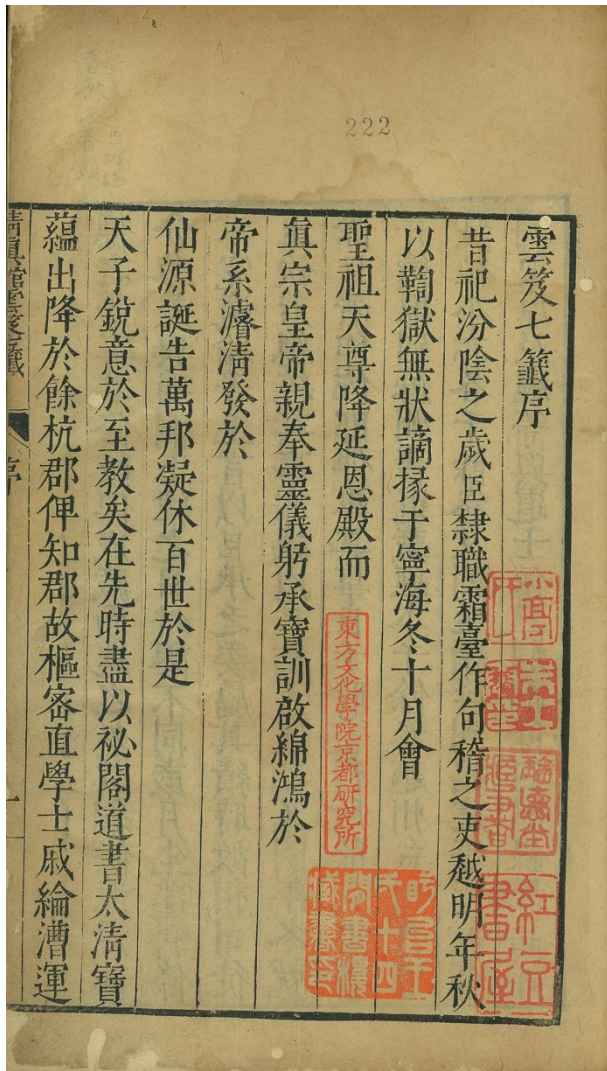 222
雲笈七籤序
昔祀汾陰之歲臣隸職霜臺作句稽之吏越明年秋
以鞫獄無狀謫掾于寧海冬十月會
聖祖天尊降延恩殿而
真宗皇帝親奉靈儀躬承寶訓啟綿鴻於
帝系濬清發於
仙源誕告萬邦凝休百世於是
天子銳意於至教矣在先時盡以祕閣道書太清寶
蘊出降於餘杭郡俾知郡故樞密直學士戚綸漕運
清真館雲笈七籤
序
一
東方文化學院京都研究所
紅豆書屋